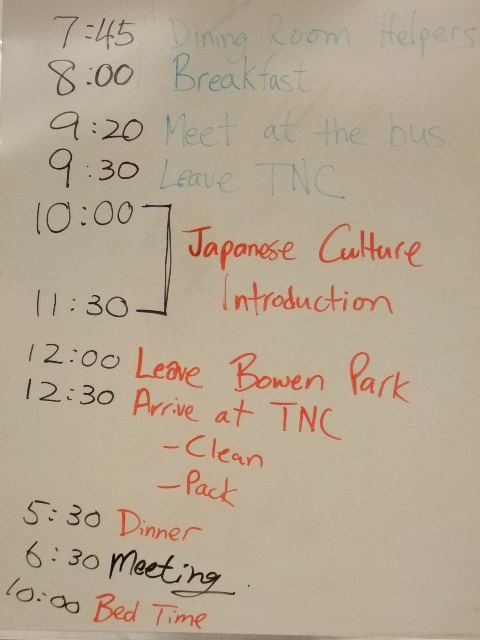 7:45 Dining Room Helpers
8:00 Breakfast
9:20 Meet at the bus
9:30 Leave TNC
10:00
Japanese Culture
Introduction
11:30
12:00 Leave Bowen Park
12:30 Arrive at TNC
-Clean
-Pack
5:30 Dinner
6:30 Meeting
10:00 Bed Time